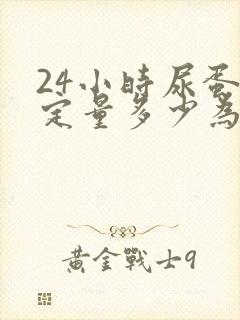 24小時尿蛋
定量多少為
黃金戰士9